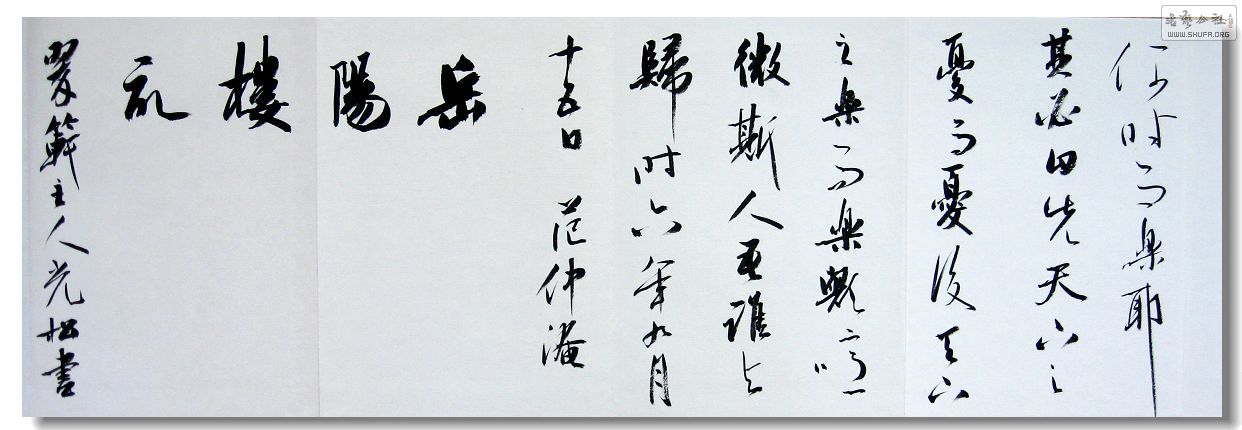 何时而樂耶
其必曰先天下之
憂而憂後天下
之樂而樂歟噫
微斯人吾誰与
歸时六年九月
十五日 范仲淹
岳陽樓記
主人光松書
書藝公社
WWW.SHUFA.ORG